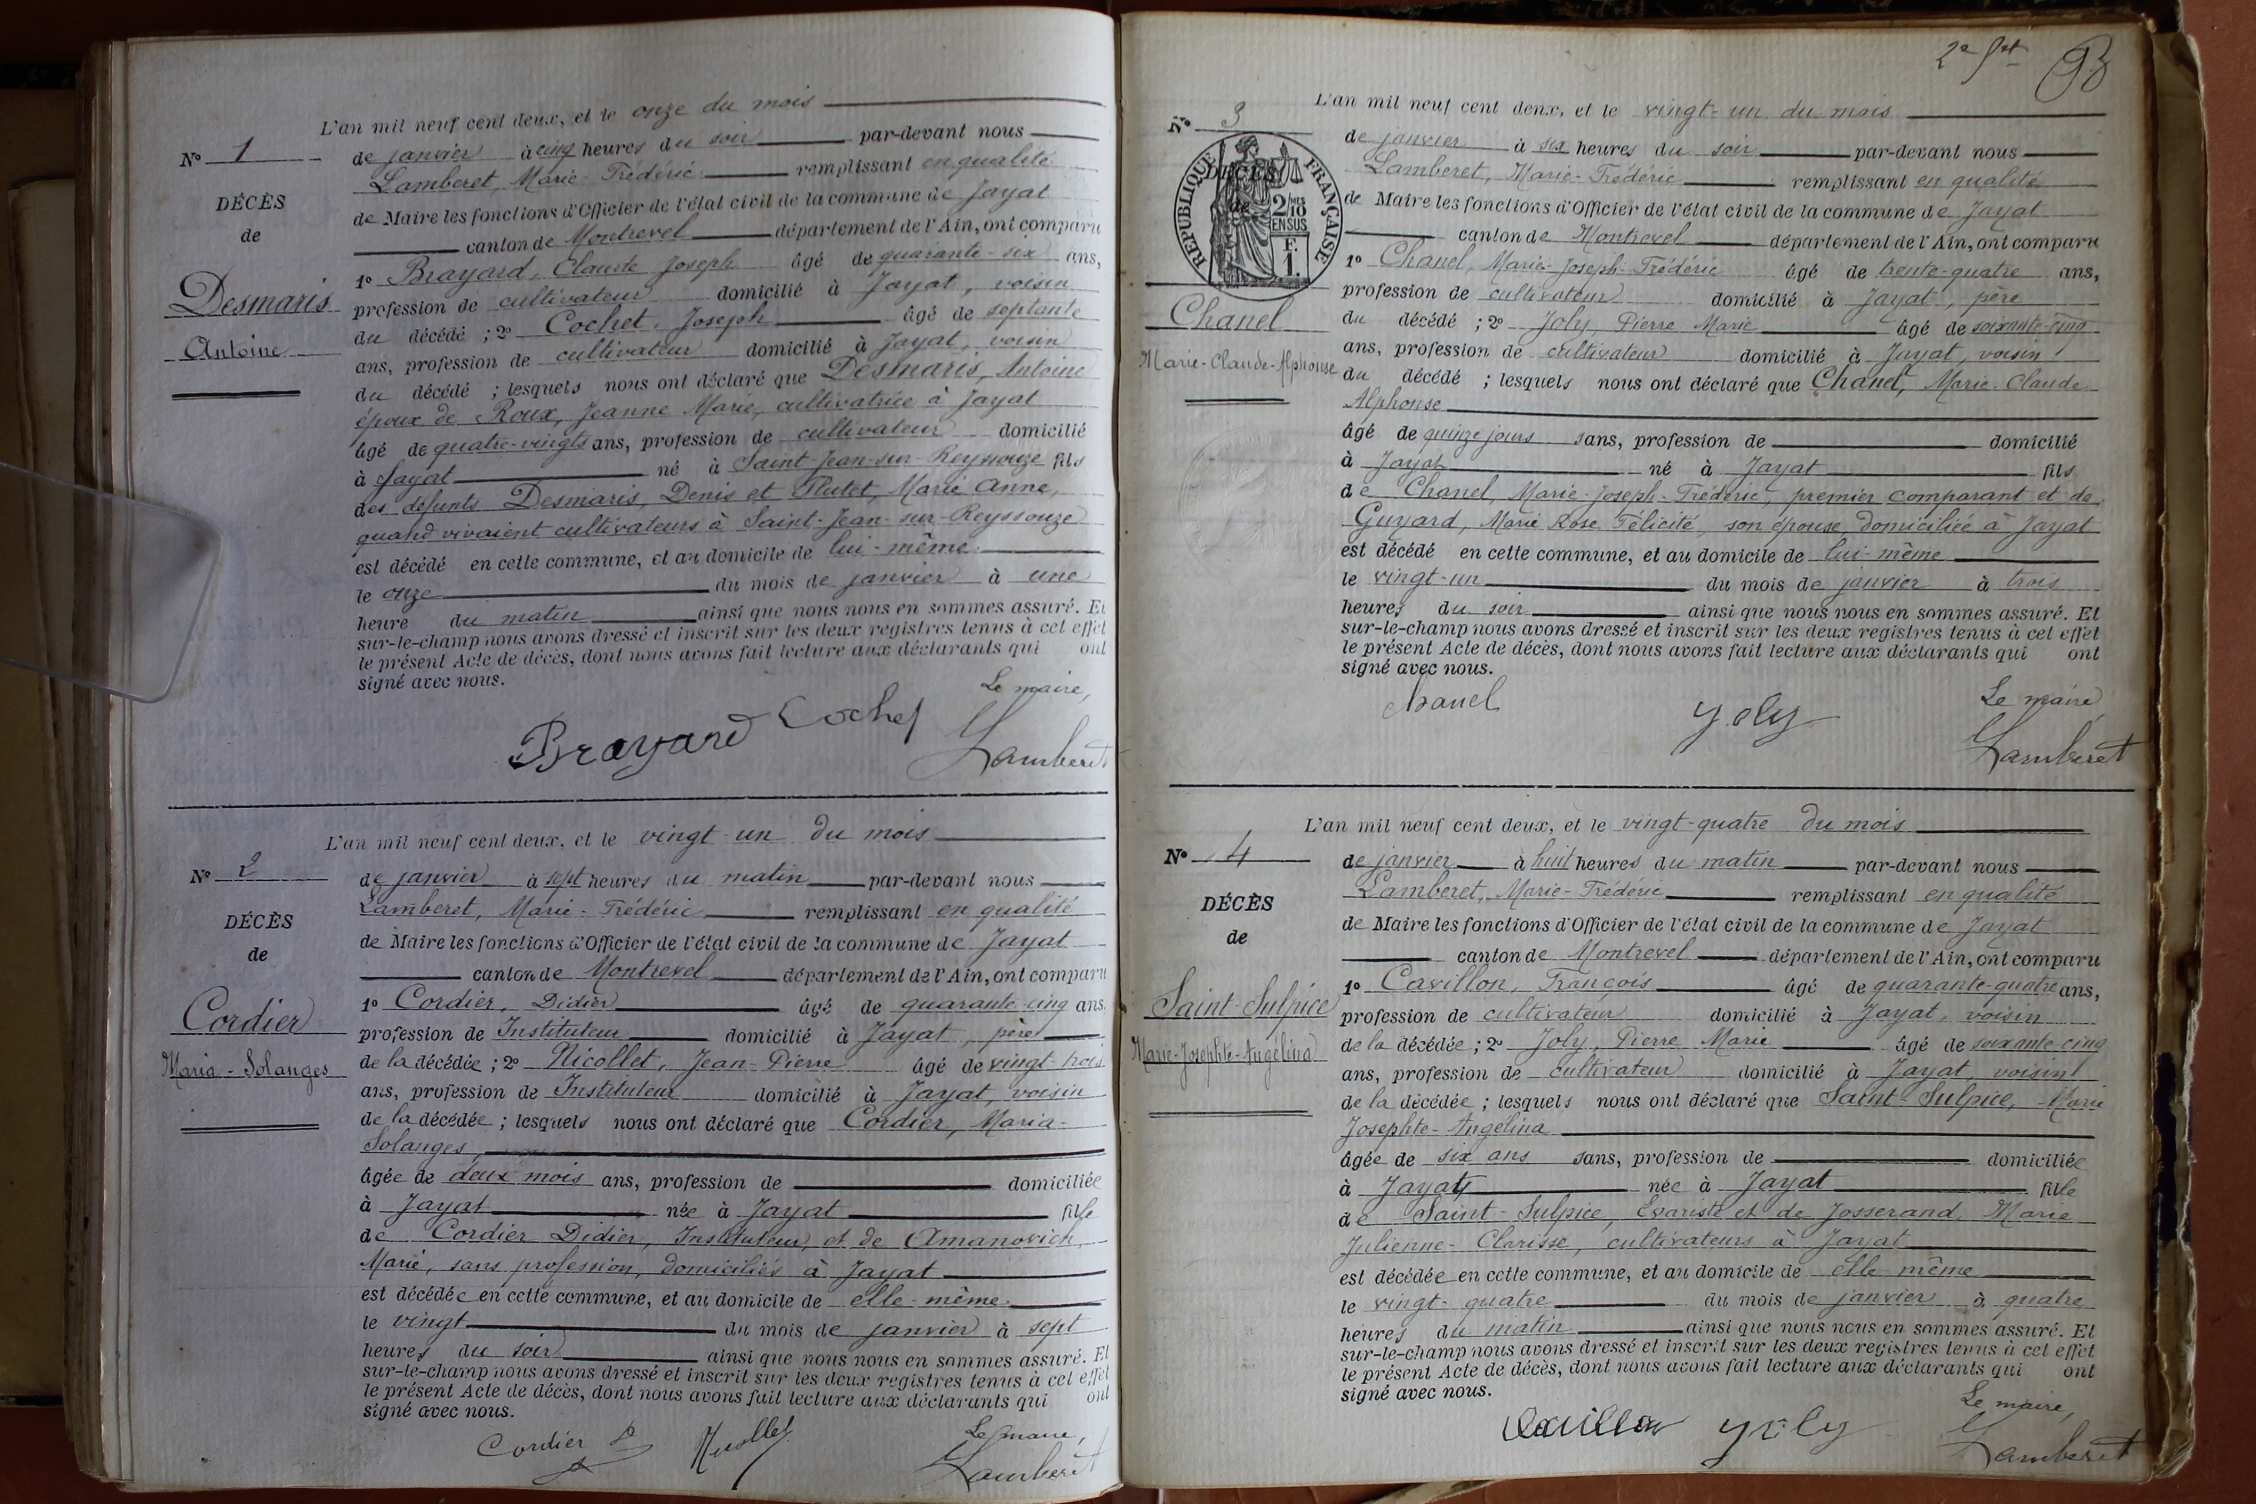 L'an mil neuf cent deux, et le onze du mois
N° 1
de janvier à cinq heures du soir par-devant nous
Lamberet, Marie-Frédéric remplissant en qualité
DÉCÈS
de Maire les fonctions d'Officier de l'état civil de la commune de Jayat
de
canton de Montrevel département de l'Ain, ont comparu
1° Brayard, Claude Joseph âgé de quarante-six ans,
Desmaris
profession de cultivateur domicilié à Jayat, voisin
du décédé ; 2° Cochet, Joseph âgé de septante
Antoine
ans, profession de cultivateur domicilié à Jayat, voisin
du décédé ; lesquels nous ont déclaré que Desmaris, Antoine
époux de Roux, Jeanne Marie, cultivatrice à Jayat
âgé de quatre-vingts ans, profession de cultivateur domicilié
à Jayat né à Saint-Jean-sur-Reyssouze fils
des défunts Desmaris, Denis et Plutet, Marie Anne,
quand vivaient cultivateurs à Saint-Jean-sur-Reyssouze
est décédé en cette commune, et au domicile de lui-même
le onze du mois de janvier à une
heure du matin ainsi que nous nous en sommes assuré. Et
sur-le-champ nous avons dressé et inscrit sur les deux registres tenus à cet effet
le présent Acte de décès, dont nous avons fait lecture aux déclarants qui ont
signé avec nous.
Le maire,
Brayard Cochet Lamberet
L'an mil neuf cent deux, et le vingt-un du mois
N° 2
de janvier à sept heures du matin par-devant nous
Lamberet, Marie-Frédéric remplissant en qualité
DÉCÈS
de Maire les fonctions d'Officier de l'état civil de la commune de Jayat
de
canton de Montrevel département de l'Ain, ont comparu
1° Cordier, Didier âgé de quarante-cinq ans,
Cordier
profession de Instituteur domicilié à Jayat, père
de la décédée ; 2° Nicollet, Jean-Pierre âgé de vingt-trois
Maria-Solanges
ans, profession de Instituteur domicilié à Jayat, voisin
de la décédée ; lesquels nous ont déclaré que Cordier, Maria-
Solanges,
âgée de deux mois ans, profession de domiciliée
à Jayat née à Jayat fille
de Cordier Didier, Instituteur, et de Amanovich,
Marie, sans profession, domiciliés à Jayat
est décédée en cette commune, et au domicile de elle-même
le vingt du mois de janvier à sept
heures du soir ainsi que nous nous en sommes assuré. Et
sur-le-champ nous avons dressé et inscrit sur les deux registres tenus à cet effet
le présent Acte de décès, dont nous avons fait lecture aux déclarants qui ont
signé avec nous.
Le maire,
Cordier D Nicollet Lamberet
2e
93
L'an mil neuf cent deux, et le vingt-un du mois
N° 3
de janvier à six heures du soir par-devant nous
Lamberet, Marie-Frédéric remplissant en qualité
DÉCÈS
de
RÉPUBLIQUE FRANÇAISE
2/10
MES
EN SUS
F.
1.
de Maire les fonctions d'Officier de l'état civil de la commune de Jayat
canton de Montrevel département de l'Ain, ont comparu
1° Chanel, Marie-Joseph-Frédéric âgé de trente-quatre ans,
profession de cultivateur domicilié à Jayat, père
Chanel
du décédé ; 2° Joly, Pierre Marie âgé de soixante-cinq
ans, profession de cultivateur domicilié à Jayat, voisin
Marie-Claude-Alphonse
du décédé ; lesquels nous ont déclaré que Chanel, Marie-Claude
Alphonse
âgé de quinze jours sans, profession de domicilié
à Jayat né à Jayat fils
de Chanel, Marie-Joseph-Frédéric, premier comparant et de
Guyard, Marie Rose Félicité, son épouse domiciliée à Jayat
est décédé en cette commune, et au domicile de lui-même
le vingt-un du mois de janvier à trois
heures du soir ainsi que nous nous en sommes assuré. Et
sur-le-champ nous avons dressé et inscrit sur les deux registres tenus à cet effet
le présent Acte de décès, dont nous avons fait lecture aux déclarants qui ont
signé avec nous.
Le maire
Chanel Joly Lamberet
L'an mil neuf cent deux, et le vingt-quatre du mois
N° 4
de janvier à huit heures du matin par-devant nous
Lamberet, Marie-Frédéric remplissant en qualité
DÉCÈS
de Maire les fonctions d'Officier de l'état civil de la commune de Jayat
de
canton de Montrevel département de l'Ain, ont comparu
1° Cavillon, François âgé de quarante-quatre ans,
Saint-Sulpice
profession de cultivateur domicilié à Jayat, voisin
Marie-Josephte-Angélina
de la décédée ; 2° Joly, Pierre Marie âgé de soixante-cinq
ans, profession de cultivateur domicilié à Jayat, voisin
de la décédée ; lesquels nous ont déclaré que Saint-Sulpice, Marie
Josephte-Angélina
âgée de six ans sans, profession de domiciliée
à Jayat née à Jayat fille
de Saint-Sulpice, Evariste et de Josserand, Marie
Julienne-Clarisse, cultivateurs à Jayat
est décédée en cette commune, et au domicile de elle même
le vingt-quatre du mois de janvier à quatre
heures du matin ainsi que nous nous en sommes assuré. Et
sur-le-champ nous avons dressé et inscrit sur les deux registres tenus à cet effet
le présent Acte de décès, dont nous avons fait lecture aux déclarants qui ont
signé avec nous.
Le maire,
Cavillon Joly Lamberet